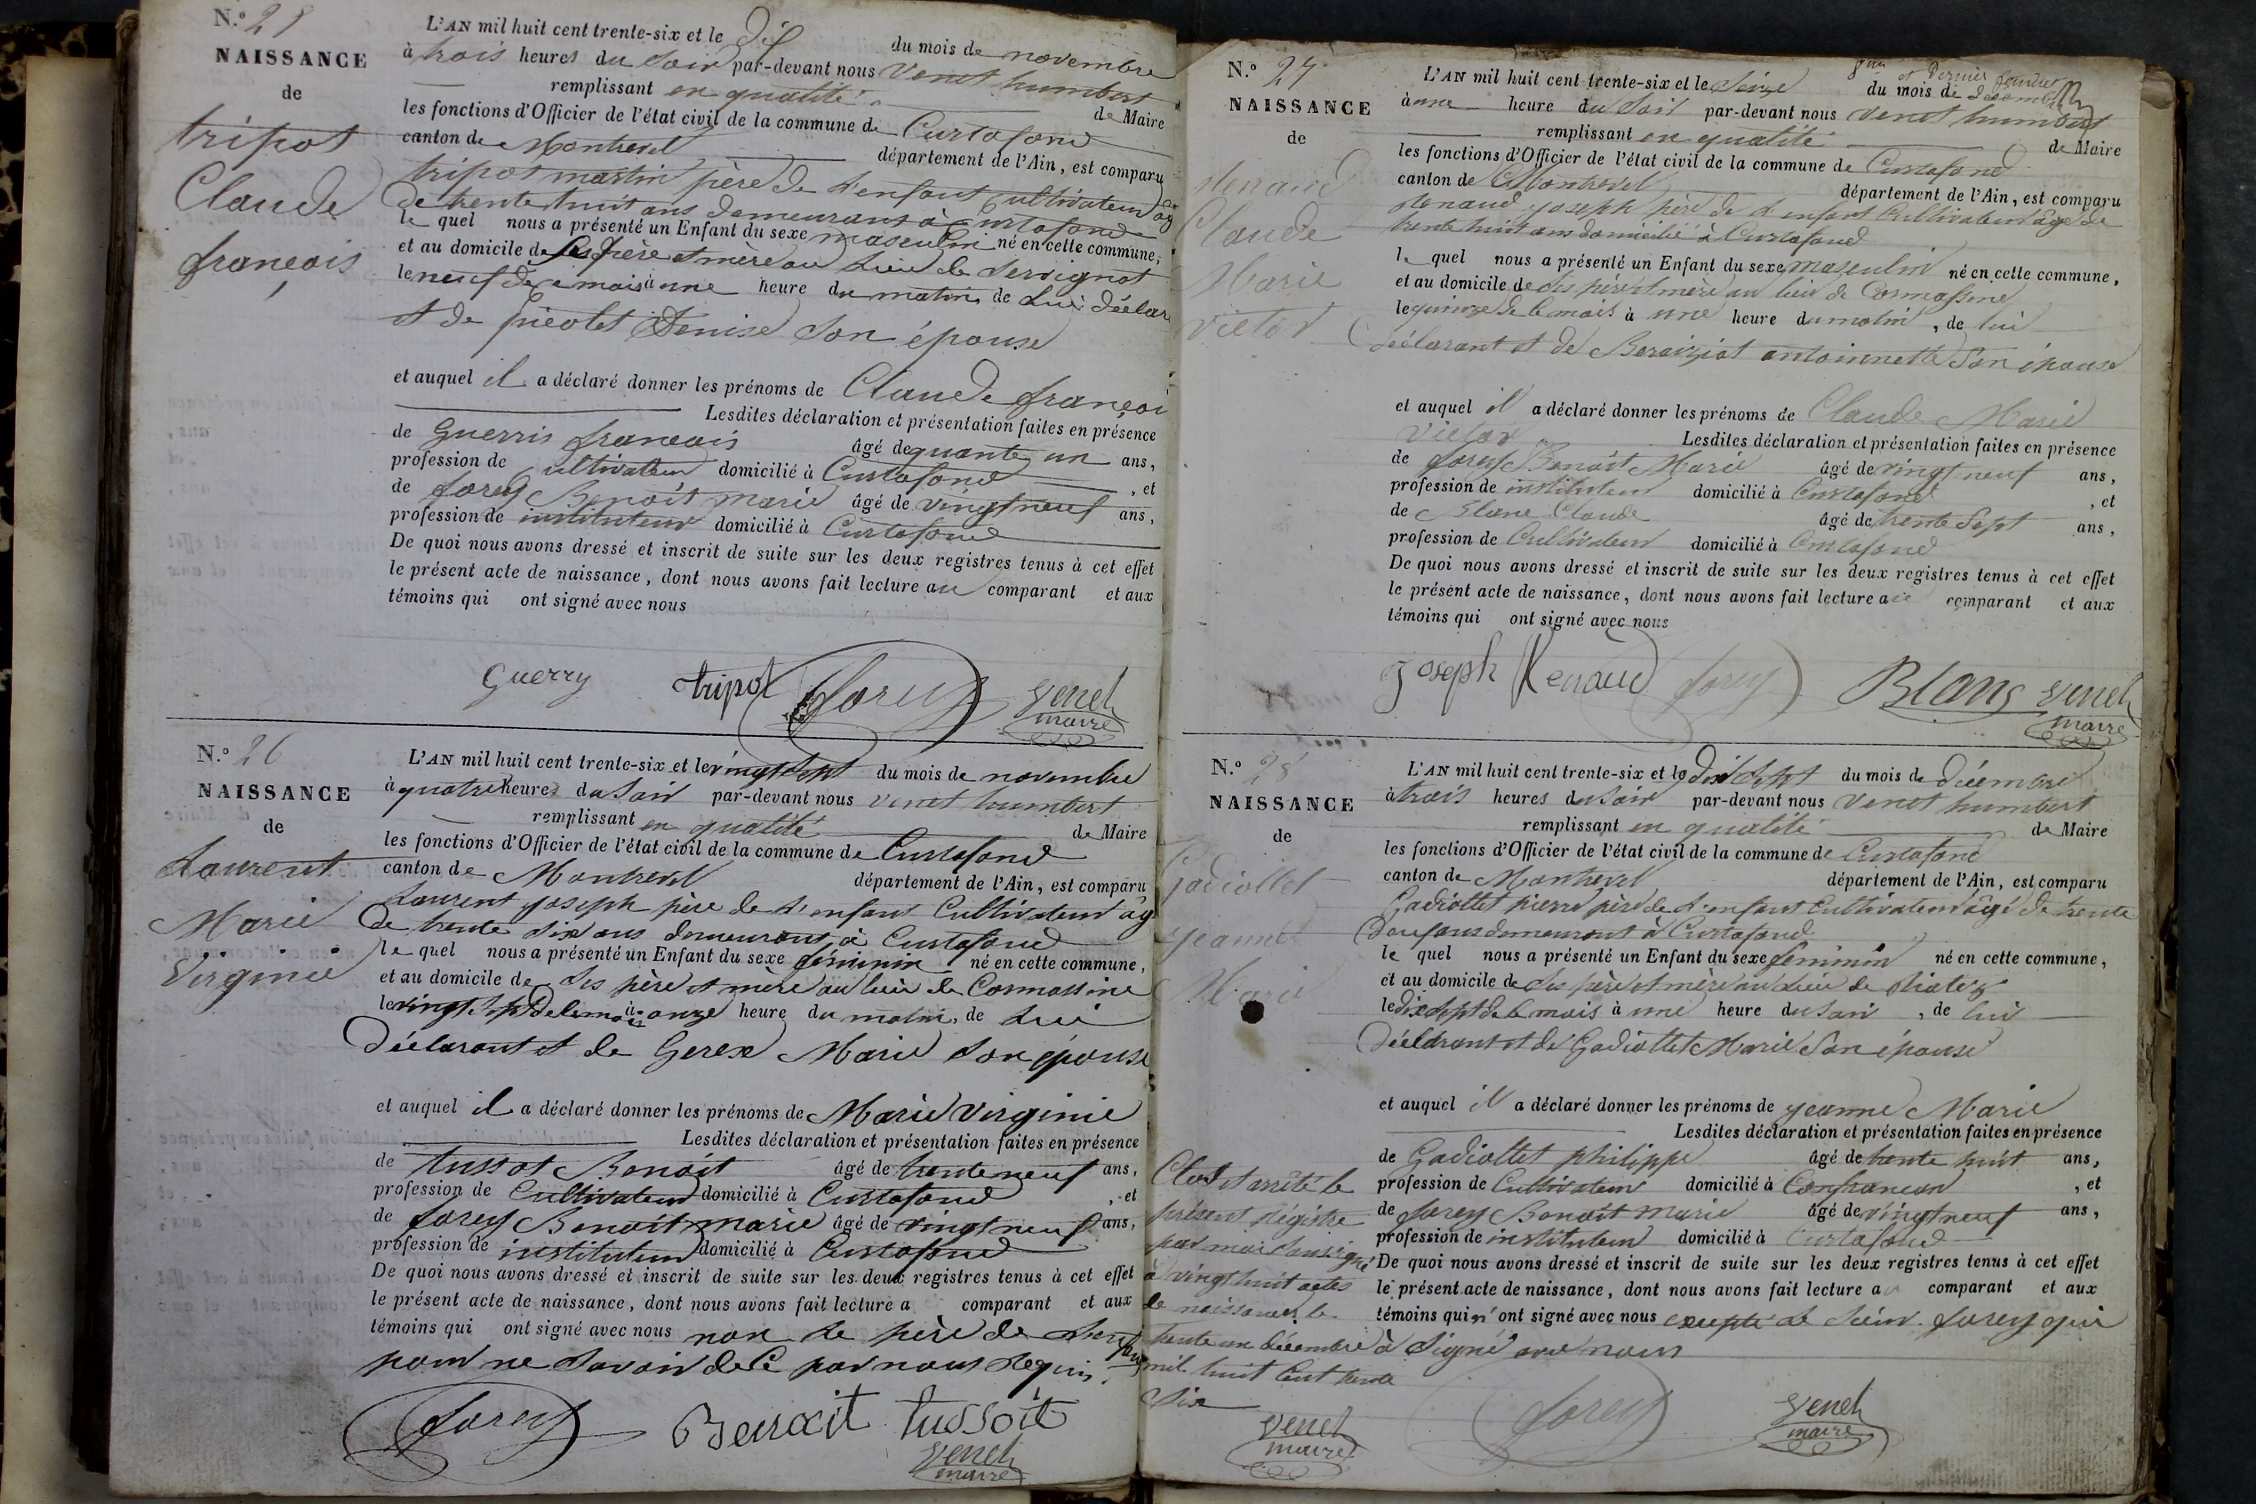 N.° 25
NAISSANCE
de
tripot
Claude
françois
L'AN mil huit cent trente-six et le dix du mois de novembre
à trois heures du Soir par-devant nous Venet humbert
remplissant en qualité de Maire
les fonctions d'Officier de l'état civil de la commune de Curtafond
canton de Montrevel département de l'Ain, est comparu
tripot martin père de L'enfant Cultivateur âg
de trente huit ans demeurant à Curtafond
le quel nous a présenté un Enfant du sexe masculin né en cette commune,
et au domicile de Ses père et mère au Lieu de Servignat
le neuf de ce mois à une heure du matin, de Lui déclar
et de Picolet Denise Son épouse
et auquel il a déclaré donner les prénoms de Claude françoi
Lesdites déclaration et présentation faites en présence
de Guerris francois âgé de quante un ans,
profession de cultivateur domicilié à Curtafond, et
de forey Benoit marie âgé de vingt neuf ans,
profession de instituteur domicilié à Curtafond
De quoi nous avons dressé et inscrit de suite sur les deux registres tenus à cet effet
le présent acte de naissance, dont nous avons fait lecture au comparant et aux
témoins qui ont signé avec nous
Guerry tripot forey Venet
maire
N.° 26
NAISSANCE
de
Laurent
Marie
Virginie
L'AN mil huit cent trente-six et le vingt Sept du mois de novembre
à quatre heures du Soir par-devant nous Venet humbert
remplissant en qualité de Maire
les fonctions d'Officier de l'état civil de la commune de Curtafond
canton de Montrevel département de l'Ain, est comparu
Laurent joseph père de L'enfant Cultivateur âg
de trente Six ans demeurant à Curtafond
le quel nous a présenté un Enfant du sexe féminin né en cette commune,
et au domicile de Ses père et mère au lieu de Cormassine
le vingt Sept de ce mois à onze heure du matin, de Lui
déclarant et de Gerex Marie Son épouse
et auquel il a déclaré donner les prénoms de Marie Virginie
Lesdites déclaration et présentation faites en présence
de tussot Benoit âgé de trente neuf ans,
profession de Cultivateur domicilié à Curtafond, et
de forey Benoit marie âgé de vingt neuf ans,
profession de instituteur domicilié à Curtafond
De quoi nous avons dressé et inscrit de suite sur les deux registres tenus à cet effet
le présent acte de naissance, dont nous avons fait lecture a comparant et aux
témoins qui ont signé avec nous non le père de L'enfant
pour ne Savoir de Ce par nous Requis
forey Benoit tussoit
Venet
maire
N.° 27
NAISSANCE
de
Renaud
Claude
Marie
Victor
et dernier feuillet
L'AN mil huit cent trente-six et le Seize du mois de décembre
à une heure du Soir par-devant nous Venet humbert
remplissant en qualité de Maire
les fonctions d'Officier de l'état civil de la commune de Curtafond
canton de Montrevel département de l'Ain, est comparu
Renaud joseph père de L'enfant Cultivateur âgé de
trente huit ans domicilié à Curtafond
le quel nous a présenté un Enfant du sexe masculin né en cette commune,
et au domicile de Ses père et mère au lieu de Cormassine
le quinze de Ce mois à une heure du matin, de lui
déclarant et de antoinnette Son épouse
et auquel il a déclaré donner les prénoms de Claude Marie
Victor Lesdites déclaration et présentation faites en présence
de forey Benoit Marie âgé de vingt neuf ans,
profession de instituteur domicilié à Curtafond, et
de Blanc Claude âgé de trente Sept ans,
profession de Cultivateur domicilié à Curtafond
De quoi nous avons dressé et inscrit de suite sur les deux registres tenus à cet effet
le présent acte de naissance, dont nous avons fait lecture au comparant et aux
témoins qui ont signé avec nous
joseph Renaud forey Blanc Venet
maire
N.° 28
NAISSANCE
de
Gadiollet
jeanne
Marie
L'AN mil huit cent trente-six et le dix Sept du mois de décembre
à trois heures du Soir par-devant nous Venet humbert
remplissant en qualité de Maire
les fonctions d'Officier de l'état civil de la commune de Curtafond
canton de Montrevel département de l'Ain, est comparu
Gadiollet pierre père de L'enfant Cultivateur âgé de trente
Douf ans demeurant à Curtafond
le quel nous a présenté un Enfant du sexe feminin né en cette commune,
et au domicile de Ses père et mère au Lieu de
le dix Sept de Ce mois à une heure du Soir, de lui
déclarant et de Gadiollet Marie Son épouse
et auquel il a déclaré donner les prénoms de jeanne Marie
Lesdites déclaration et présentation faites en présence
de Gadiollet philippe âgé de trente huit ans,
profession de Cultivateur domicilié à Confrancon, et
de forey Benoit marie âgé de vingt neuf ans,
profession de instituteur domicilié à Curtafond
De quoi nous avons dressé et inscrit de suite sur les deux registres tenus à cet effet
le présent acte de naissance, dont nous avons fait lecture a comparant et aux
témoins qui n'ont signé avec nous excepté le Sieur forey qui
à Signé avec nous
forey Venet
maire
Clos et arrêté le
présent Régistre
par moi Soussigné
à vingt huit actes
de naissances le
trente un décembre
mil huit Cent trente
Six
Venet
maire